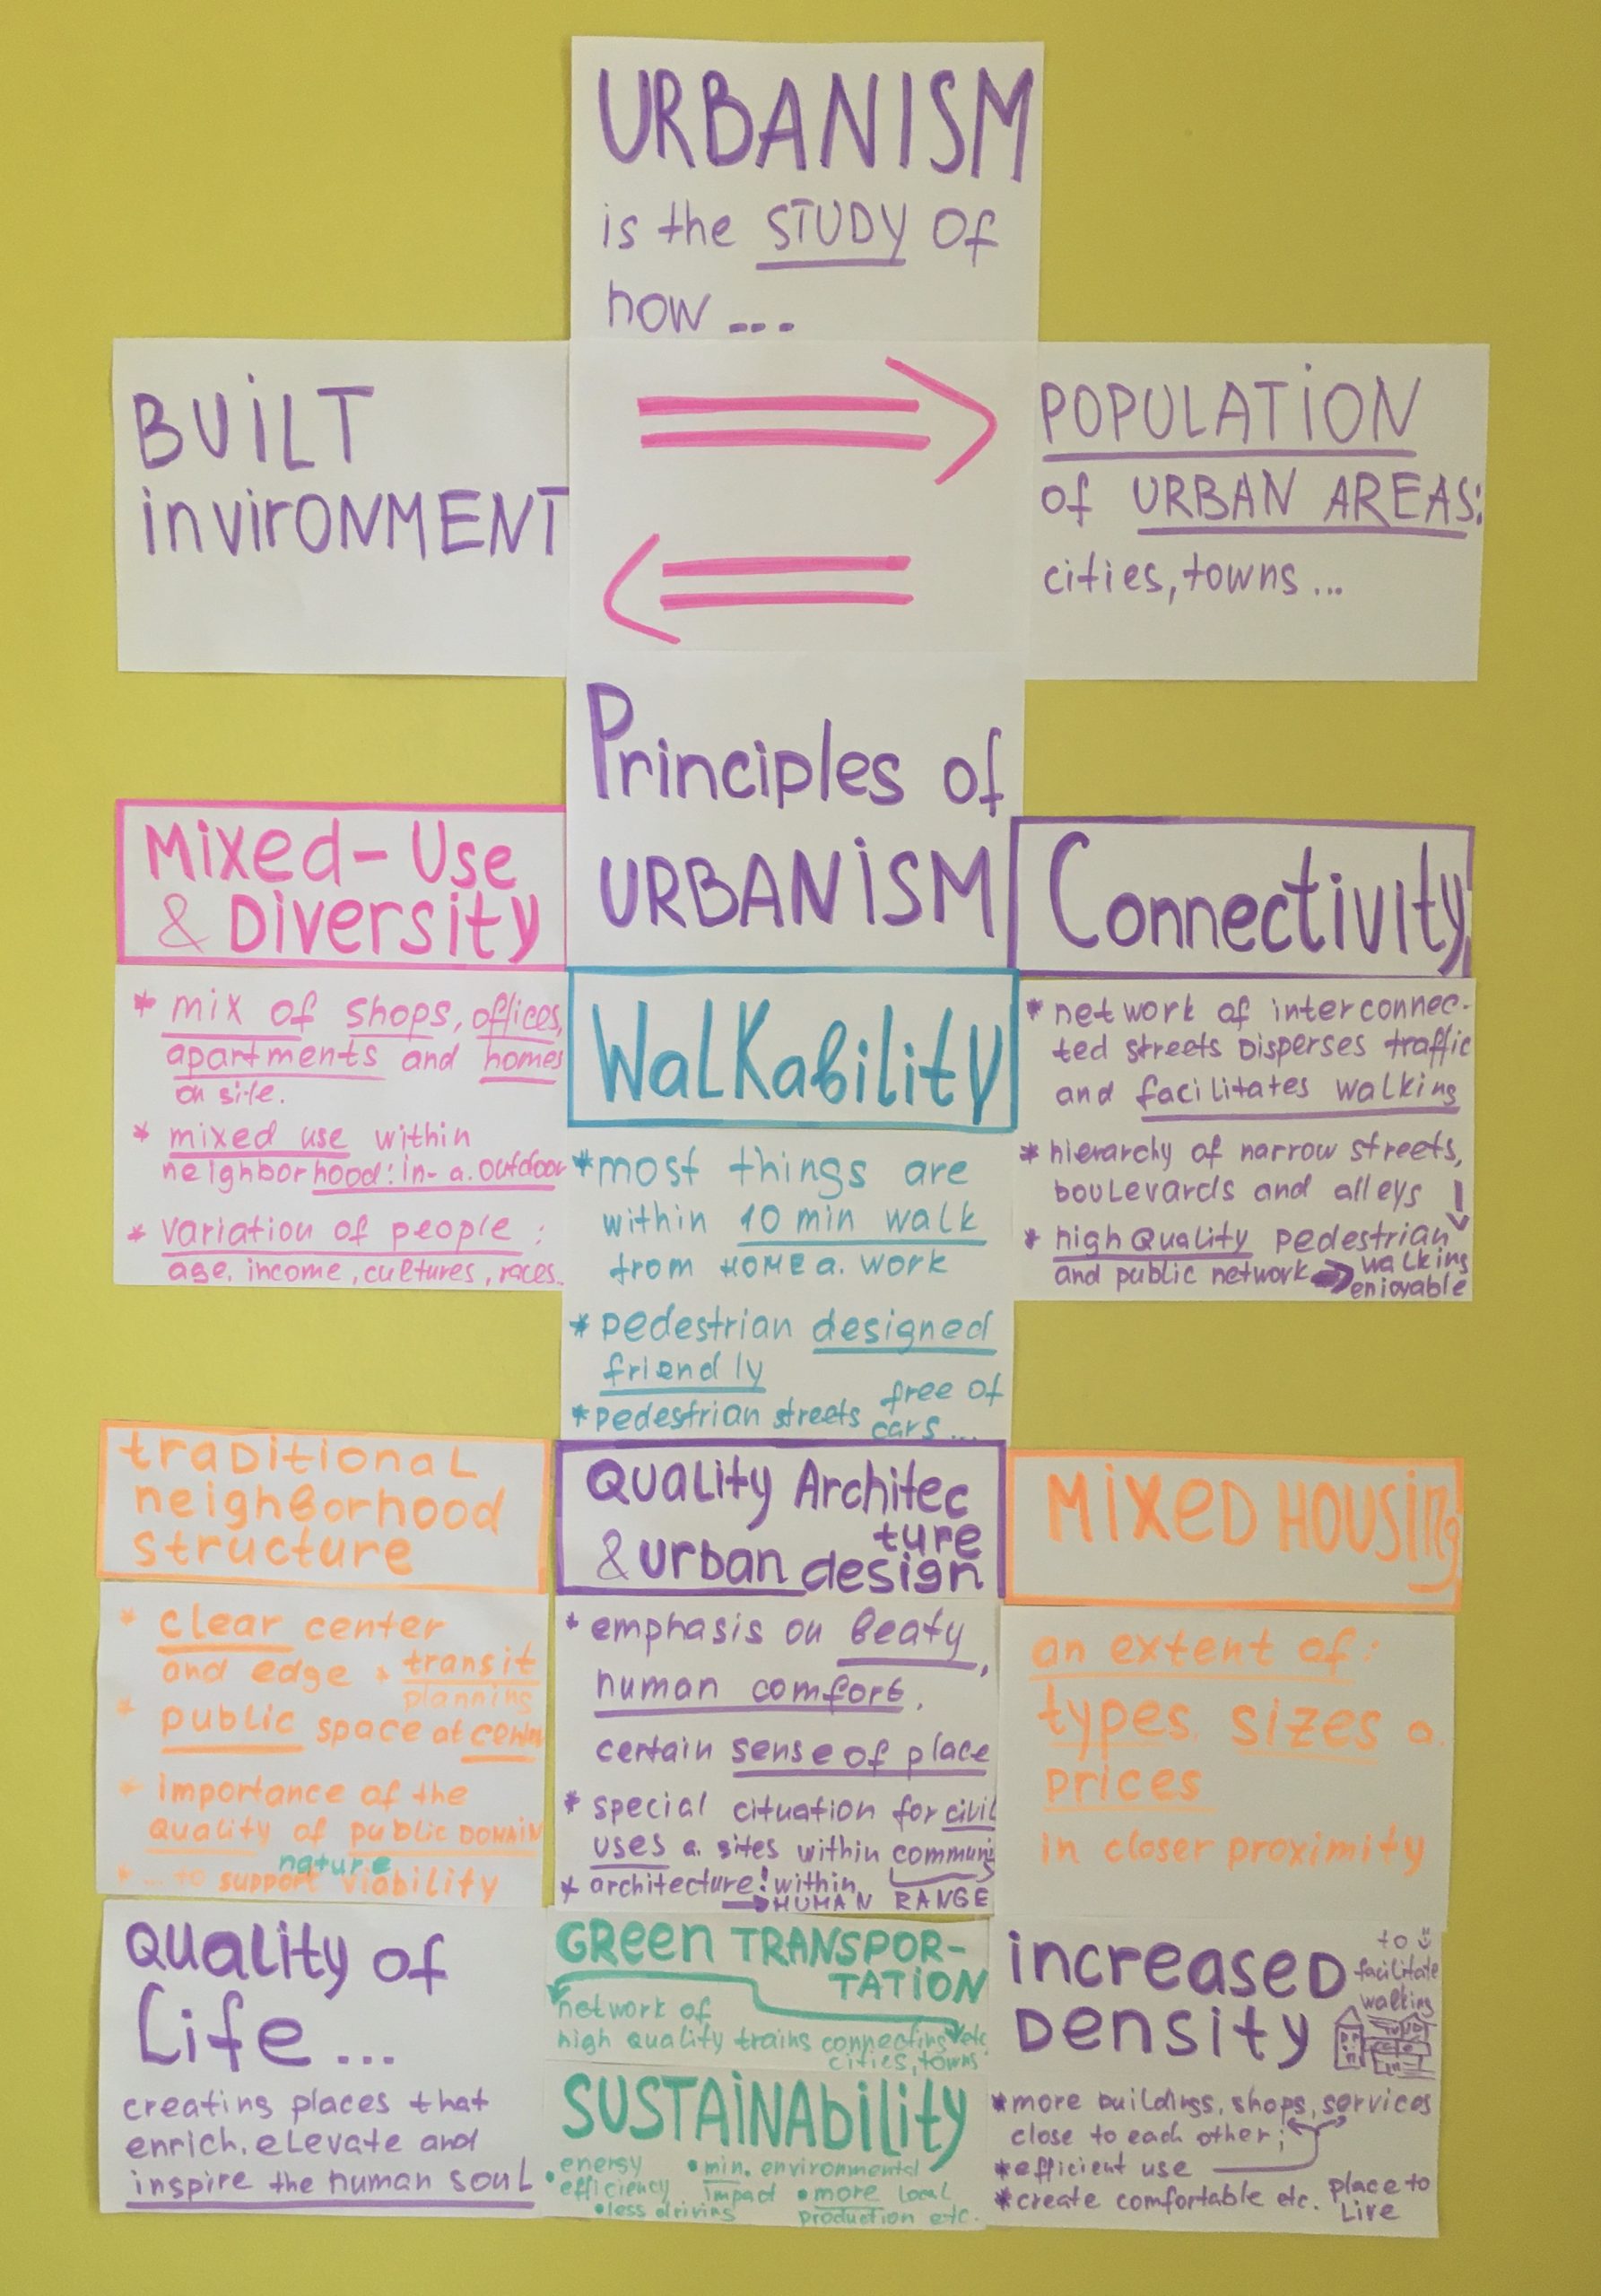 URBANISM
is the STUDY of
how ...
BUILT
invironMENT
POPULATION
of URBAN AREAS:
cities, towns ...
Principles of
URBANISM
Mixed-Use
& Diversity
* mix of shops, offices,
apartments and homes
on site.
* mixed use within
neighborhood: in- a. outdoor
* variation of people :
age, income, cultures, races..
Walkability
* most things are
within 10 min walk
from HOME a. work
* pedestrian designed
friendly
* pedestrian streets free of
cars ...
Connectivity
* network of interconnec-
ted streets Disperses traffic
and facilitates walking
* hierarchy of narrow streets,
boulevards and alleys
* high Quality pedestrian
and public network → walking
enjoyable
traditional
neighborhood
structure
* clear center
and edge * transit
planning
* public space at center
* importance of the
Quality of public DOMAIN
nature
* ... to support viability
Quality Architec
ture
& urban design
* emphasis on beaty,
human comfort,
certain sense of place
* special cituation for civil
uses a. sites within
* architecture! within
→ HUMAN RANGE
Mixed Housing
an extent of:
types, sizes a.
prices
in closer proximity
Quality of
Life ...
creating places that
enrich, elevate and
inspire the human soul
Green TRANSPOR-
TATION
network of
high quality trains connecting etc
cities, towns
SUSTAiNAbility
• energy
efficiency
• less driving
• min. environmental
impact
• more local
production etc.
increased
Density
to
facilitate
walking
* more buildings, shops, services
close to each other;
* efficient use
* create comfortable etc. place to
Live